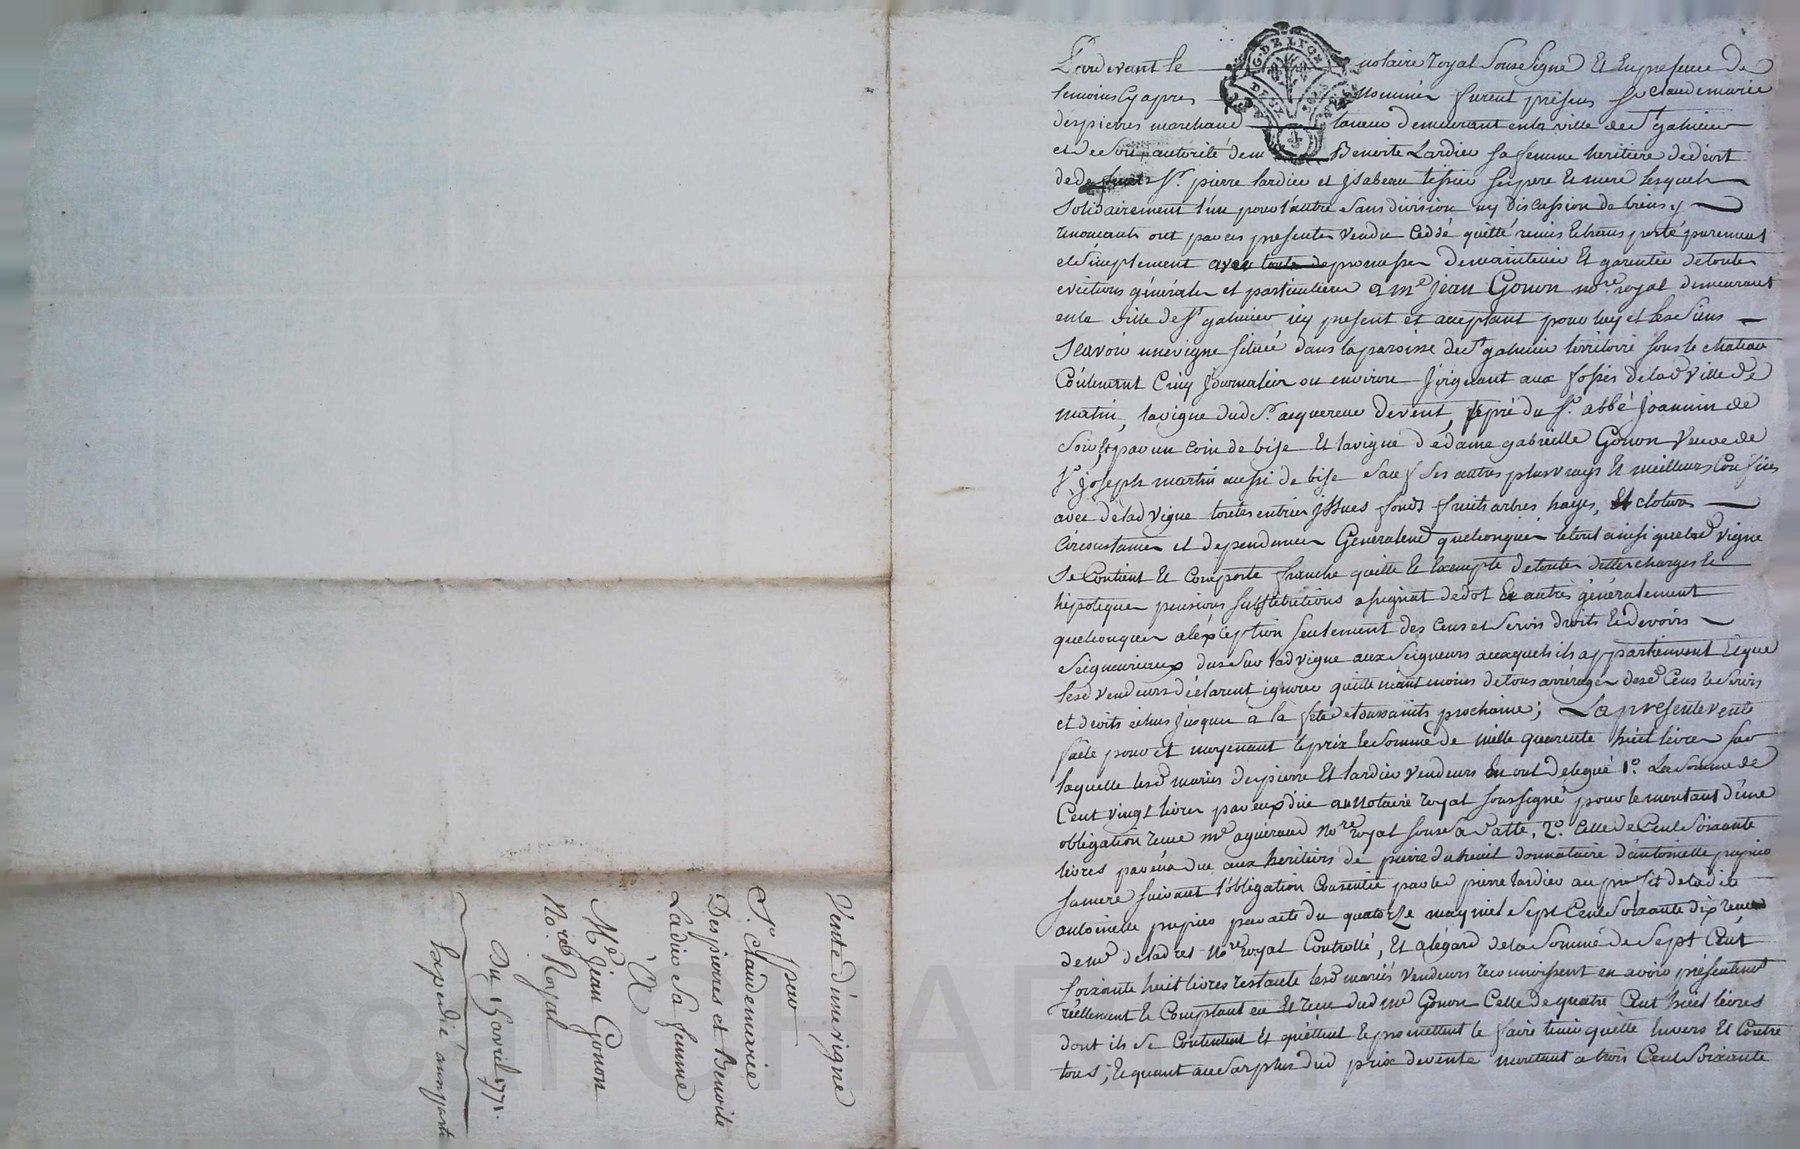 Pardevant le notaire royal soussigné et en presence de
temoins cy apres nommés furent présens sr claude marie
despierres marchand taneur demeurant en la ville de st galmier
et de son autorité dem Benoite Lardieu sa femme heritiere de droit
de sr. pierre lardieu et jsabeau tessier ses pere et mere lesquels
Solidairement l'un pour l'autre sans division ny discussion de biens y
renonceants ont par ces presentes vendu ceddé quitté remis et transporté purement
et simplement avec toute promesses de maintenir et garentir de toutes
evictions générales et particulieres a me jean Gonon nore. royal demeurant
en la ville de st galmier icy present et acceptant pour luy et les siens
Scavoir une vigne située dans la paroisse de st galmier territoire sous le chateau
Contenant cinq journaliers ou environ joignant aux fossés de lad ville de
matin, la vigne dud sr. acquereur de vent, le pré du sr. abbé joannin de
soir, et par un coin de bise et la vigne de dame gabrielle Gonon veuve de
sr. joseph martin aussi de bise sauf ses autres plus vrays et meilleurs confins
avec de lad vigne toutes entrées jssues fonds fruits arbres hayes, et cloture
circonstances et dependances Generalement quelconques le tout ainsi que lad vigne
se Contient et comporte franche quitte et exempte de toutes dettes charges et
hipoteques pensions substitutions assignat de dot et autres généralement
quelconques a l'exception seulement des cens et servis droits et devoirs
seigneuriaux dus sur lad vigne aux seigneurs auxquels ils appartiennent et que
lesd vendeurs déclarent ignorer quitte néantmoins de tous arrérages desd cens et servis
et droits echus jusques à la fete de toussaints prochaine; La presente vente
faite pour et moyenant le prix et somme de mille quarente huit livres sur
laquelle lesd mariés despierre et lardieu vendeurs en ont delegué 1o. La somme de
Cent vingt livres par eux due au notaire royal soussigné pour le montant d'une
obligation reçue me aguiraud nore royal sous sa datte, 2o. celle de Cent soixante
livres par eux due aux heritiers de pierre duheuil donnataire d'antoinette
sa mere suivant l'obligation consentie par led pierre lardieu au profit de ladite
antoinette par acte du quatorze may mil sept cent soixante dix reçue
de me deladres nore royal Controllé, et a légard de la somme de sept Cent
soixante huit livres restante lesd mariés vendeurs reconnoissent en avoir présentement
réellement et comptant eu et reçu dud me Gonon celle de quatre cent huit livres
dont ils se contentent et quittent et promettent le faire tenir quitte envers et contre
tous; et quant au surplus dud prix de vente montant a trois Cent soixante
Vente d'une vigne
par
Sr. Claude marie
Despierres et Benoite
Lardieu sa femme
A
Me. Jean Gonon
Nore. Royal
Du 15 avril 1771.
Expedié